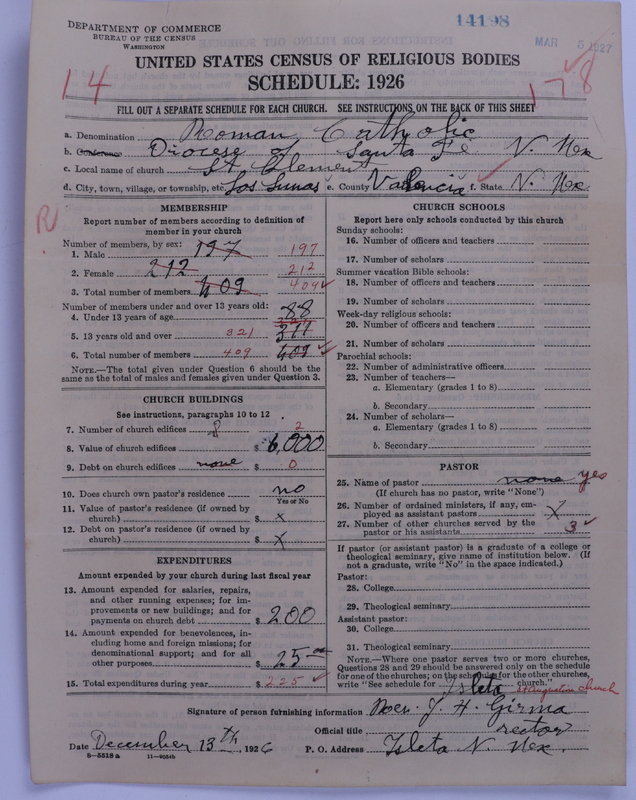 14198
DEPARTMENT OF COMMERCE
BUREAU OF THE CENSUS
WASHINGTON
MAR 5 1927
UNITED STATES CENSUS OF RELIGIOUS BODIES
SCHEDULE: 1926
14
178
FILL OUT A SEPARATE SCHEDULE FOR EACH CHURCH. SEE INSTRUCTIONS ON THE BACK OF THIS SHEET
a. Denomination Roman Catholic
b. Conference Diocese of Santa Fe N. Mex
c. Local name of church St Clement
d. City, town, village, or township, etc. Los Lunas e. County Valencia f. State N. Mex
R
MEMBERSHIP
Report number of members according to definition of
member in your church
Number of members, by sex:
1. Male 197 197
2. Female 212 212
3. Total number of members 409 409
Number of members under and over 13 years old:
4. Under 13 years of age 88
5. 13 years old and over 321
6. Total number of members 409 409
NOTE.—The total given under Question 6 should be the
same as the total of males and females given under Question 3.
CHURCH BUILDINGS
See instructions, paragraphs 10 to 12
7. Number of church edifices 2
8. Value of church edifices $ 6,000
9. Debt on church edifices none $ 0
10. Does church own pastor's residence no
Yes or No
11. Value of pastor's residence (if owned by
church) $ x
12. Debt on pastor's residence (if owned by
church) $ x
EXPENDITURES
Amount expended by your church during last fiscal year
13. Amount expended for salaries, repairs,
and other running expenses; for im-
provements or new buildings; and for
payments on church debt $ 200
14. Amount expended for benevolences, in-
cluding home and foreign missions; for
denominational support; and for all
other purposes $ 25
15. Total expenditures during year $ 225
CHURCH SCHOOLS
Report here only schools conducted by this church
Sunday schools:
16. Number of officers and teachers
17. Number of scholars
Summer vacation Bible schools:
18. Number of officers and teachers
19. Number of scholars
Week-day religious schools:
20. Number of officers and teachers
21. Number of scholars
Parochial schools:
22. Number of administrative officers
23. Number of teachers—
a. Elementary (grades 1 to 8)
b. Secondary
24. Number of scholars—
a. Elementary (grades 1 to 8)
b. Secondary
PASTOR
25. Name of pastor none yes
(If church has no pastor, write "None")
26. Number of ordained ministers, if any, em-
ployed as assistant pastors x
27. Number of other churches served by the
pastor or his assistants 3
If pastor (or assistant pastor) is a graduate of a college or
theological seminary, give name of institution below. (If
not a graduate, write "No" in the space indicated.)
Pastor:
28. College
29. Theological seminary
Assistant pastor:
30. College
31. Theological seminary
NOTE.—Where one pastor serves two or more churches,
Questions 28 and 29 should be answered only on the schedule
for one of the churches; on the schedules for the other churches,
write "See schedule for Isleta church." St Augustine church
Signature of person furnishing information Rev. J. H. Girma
Official title rector
Date December 13th, 1926 P. O. Address Isleta N. Mex.
8—5518a 11—9034b